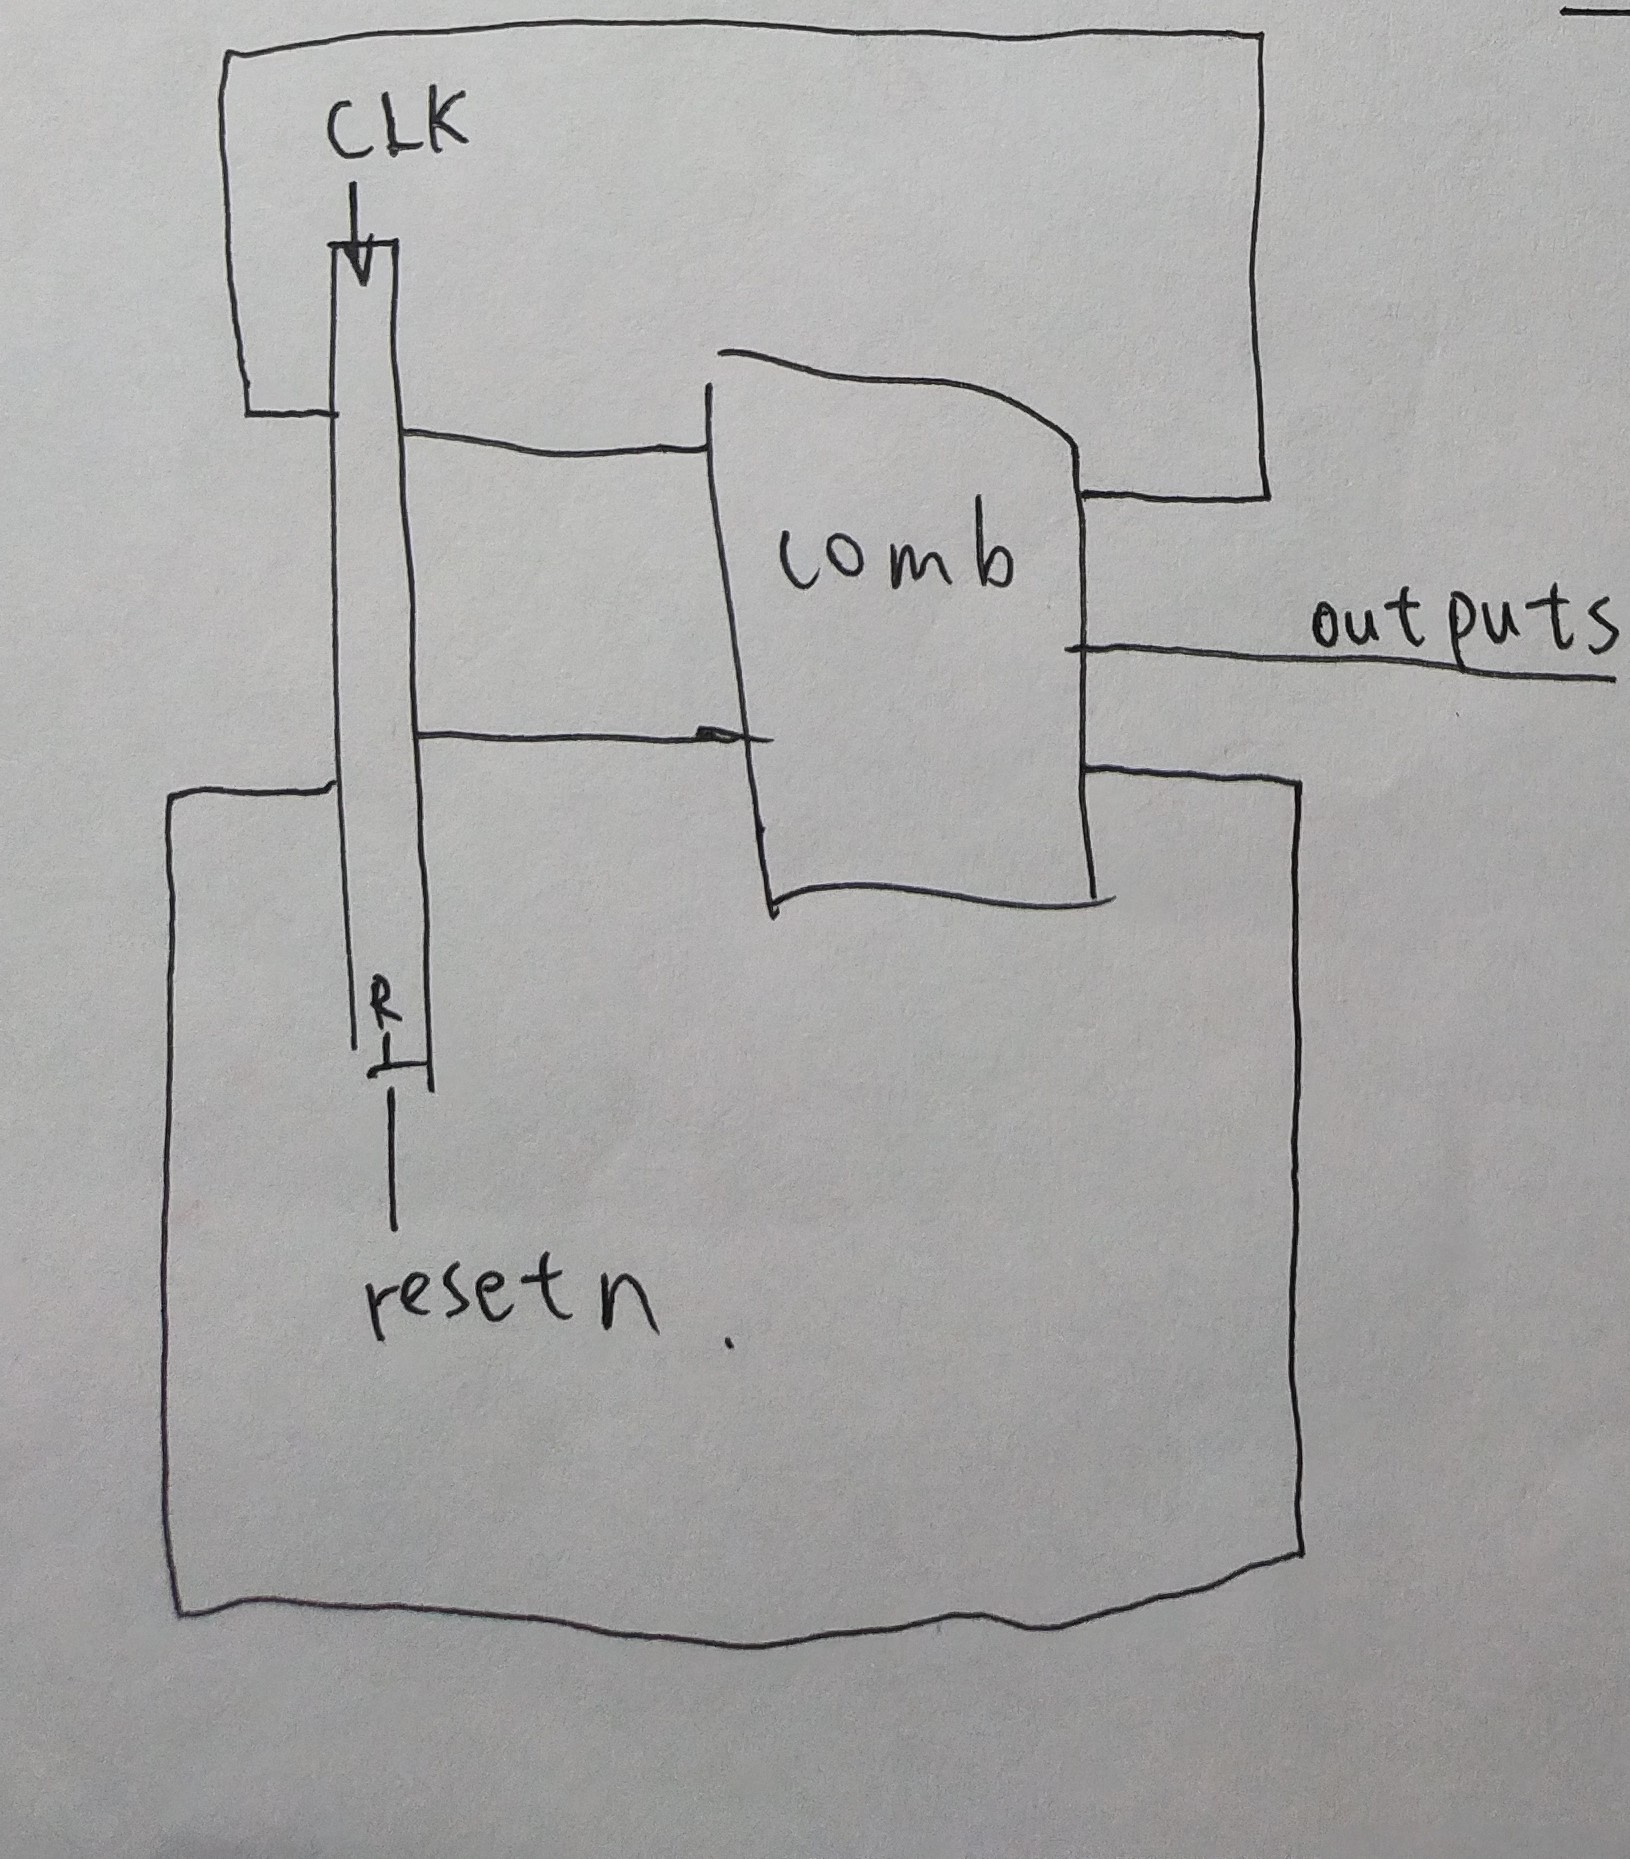 CLK
comb
outputs
R
resetn.